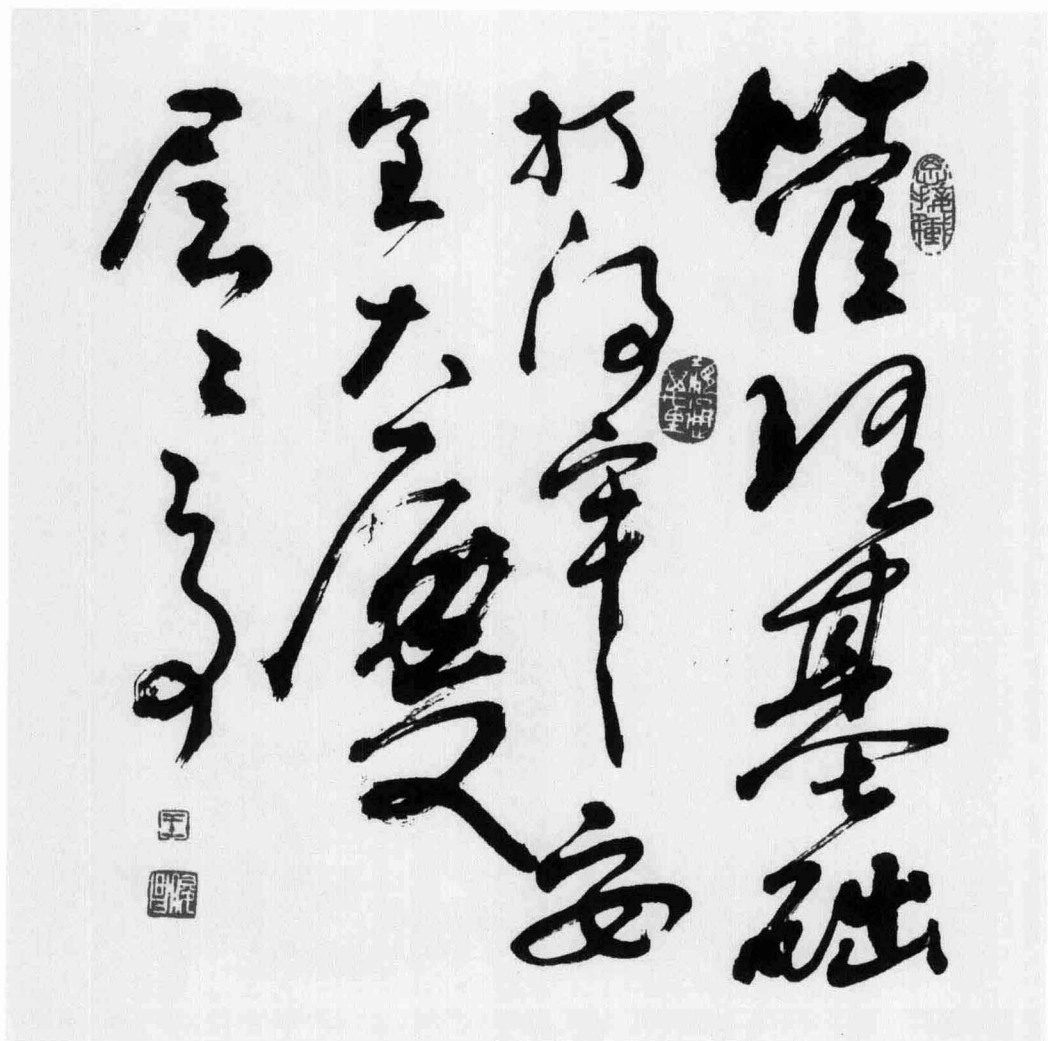 管理基础
打得牢安
全大厦
层々高
王